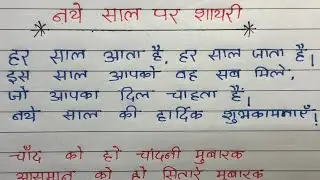 नये साल पर शायरी
हर साल आता है, हर साल जाता है।
इस साल आपको वह सब मिले,
जो आपका दिल चाहता है।
नये साल की हार्दिक शुभकामनाएँ!
चाँद को हो चाँदनी मुबारक
आसमान को हो सितारे मुबारक